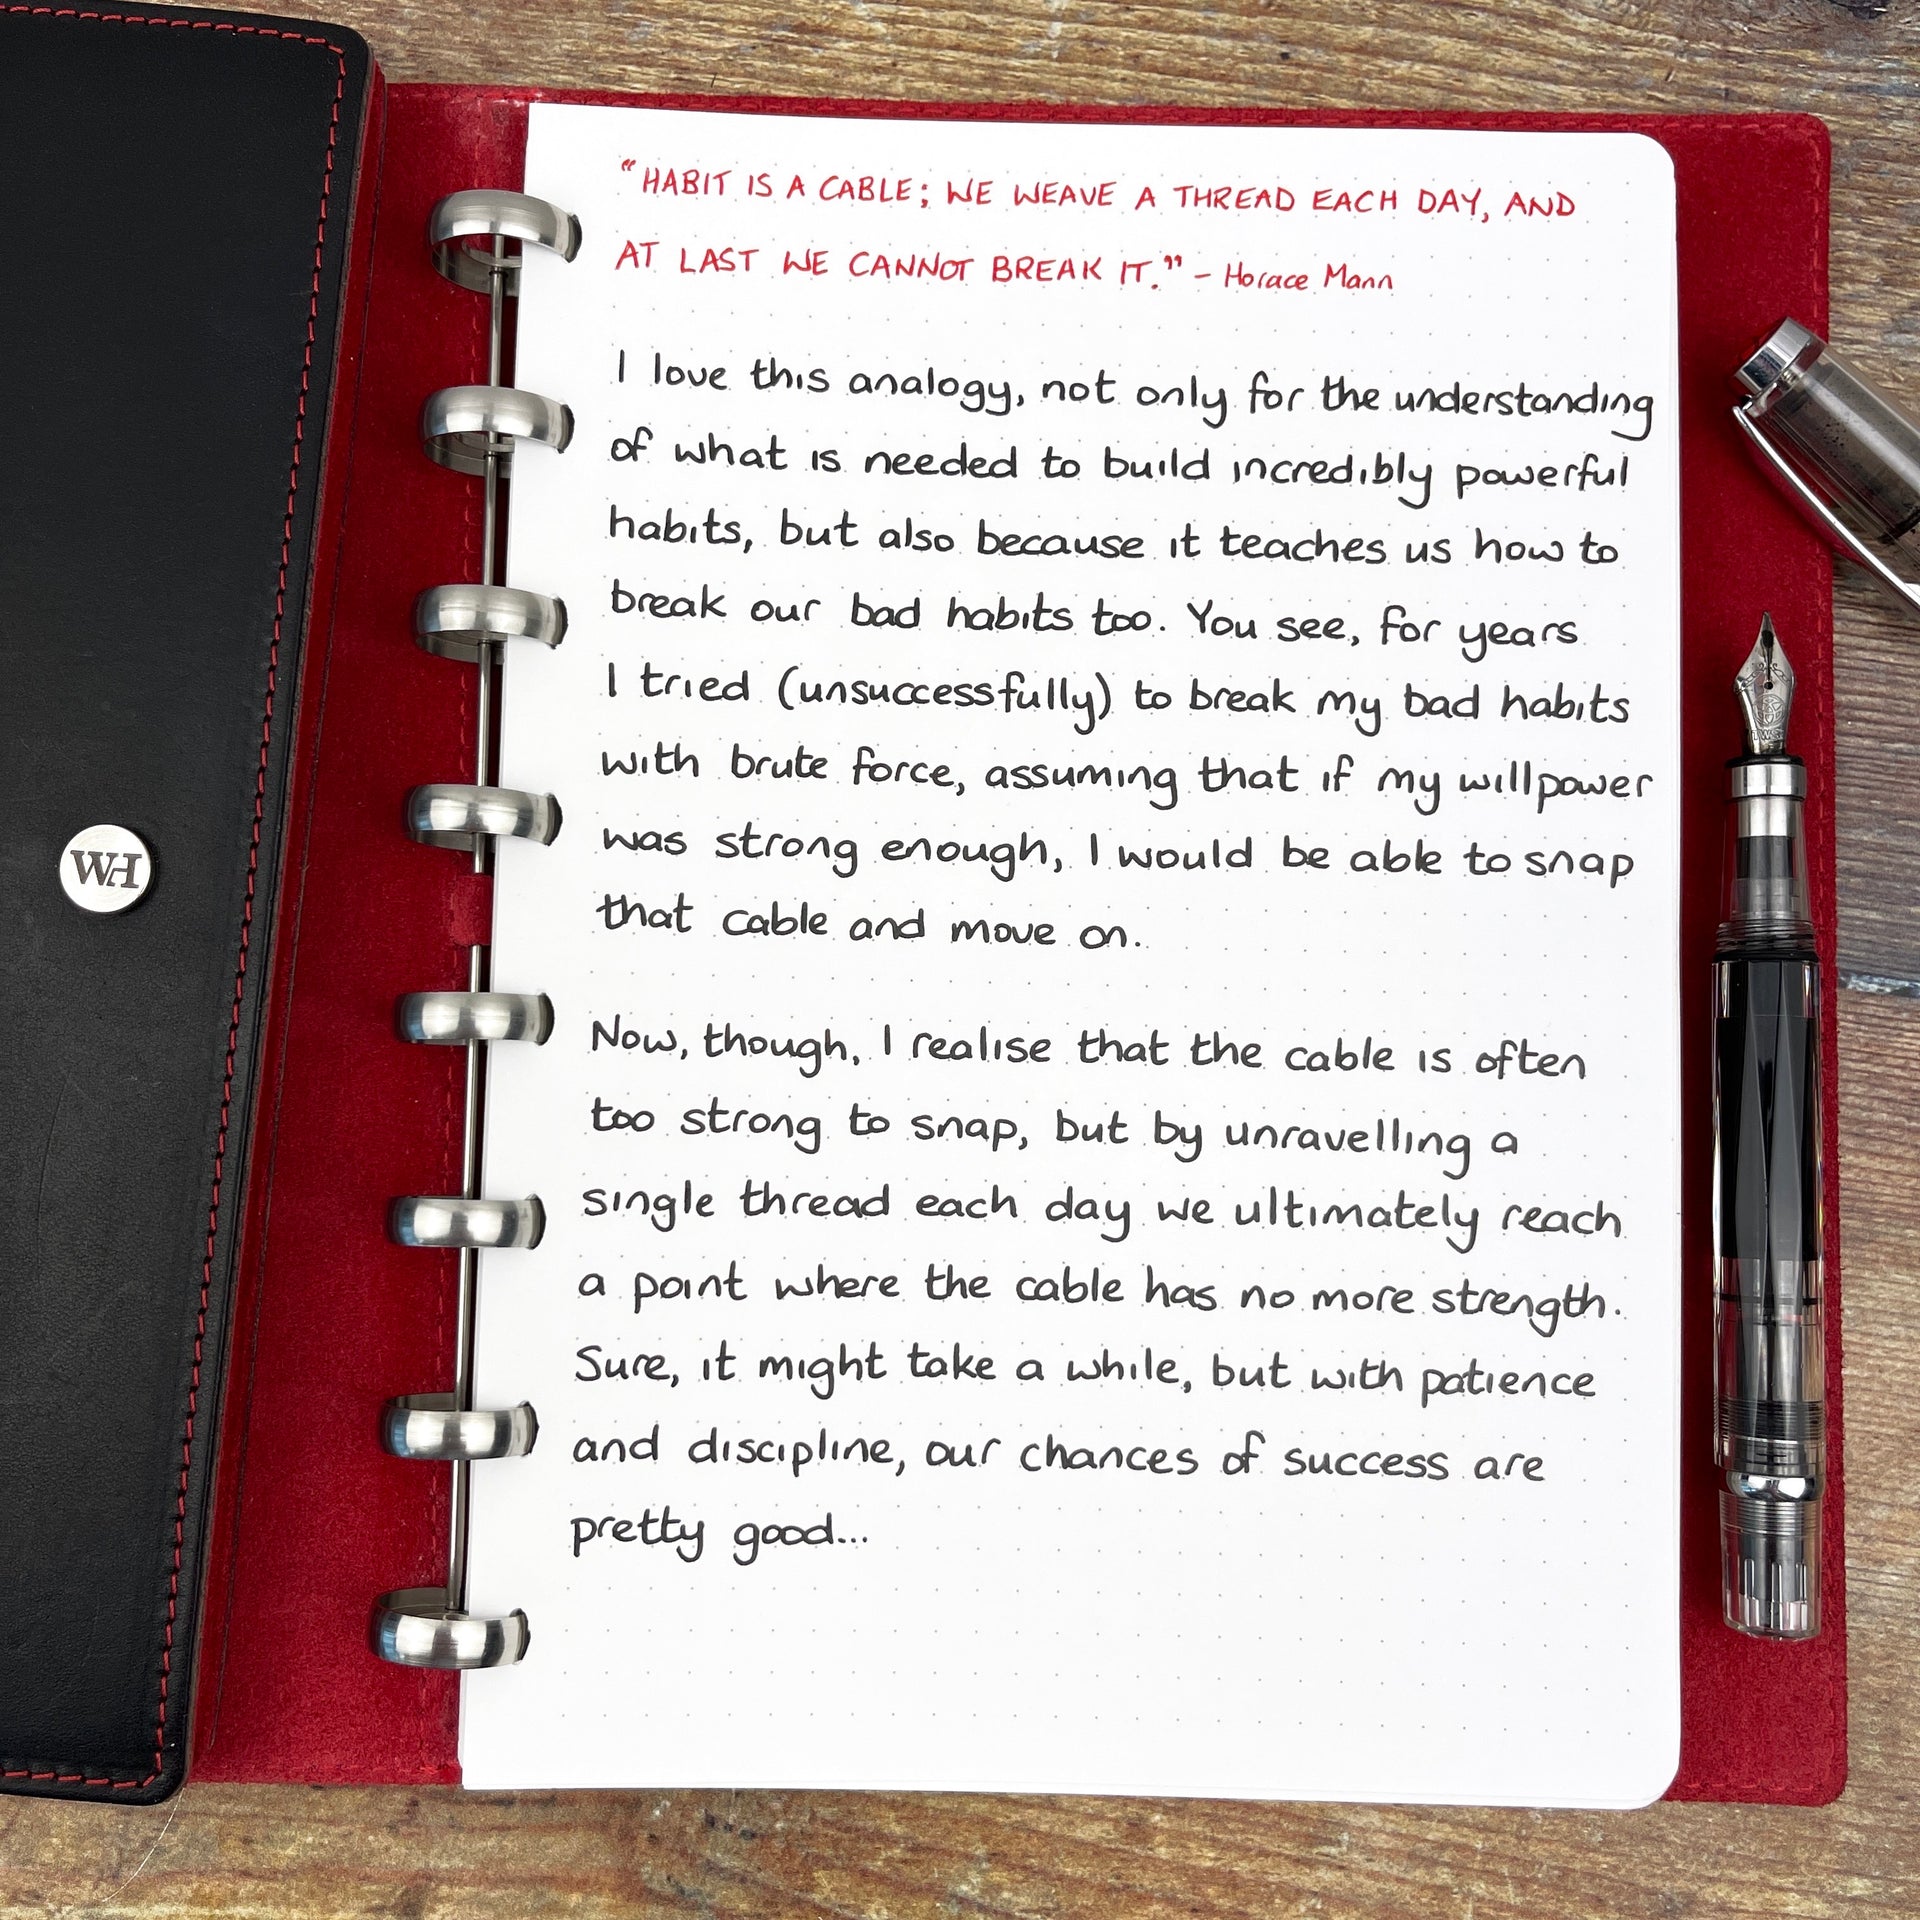 WH
"HABIT IS A CABLE; WE WEAVE A THREAD EACH DAY, AND
AT LAST WE CANNOT BREAK IT." - Horace Mann
I love this analogy, not only for the understanding
of what is needed to build incredibly powerful
habits, but also because it teaches us how to
break our bad habits too. You see, for years
I tried (unsuccessfully) to break my bad habits
with brute force, assuming that if my willpower
was strong enough, I would be able to snap
that cable and move on.
Now, though, I realise that the cable is often
too strong to snap, but by unravelling a
single thread each day we ultimately reach
a point where the cable has no more strength.
Sure, it might take a while, but with patience
and discipline, our chances of success are
pretty good...